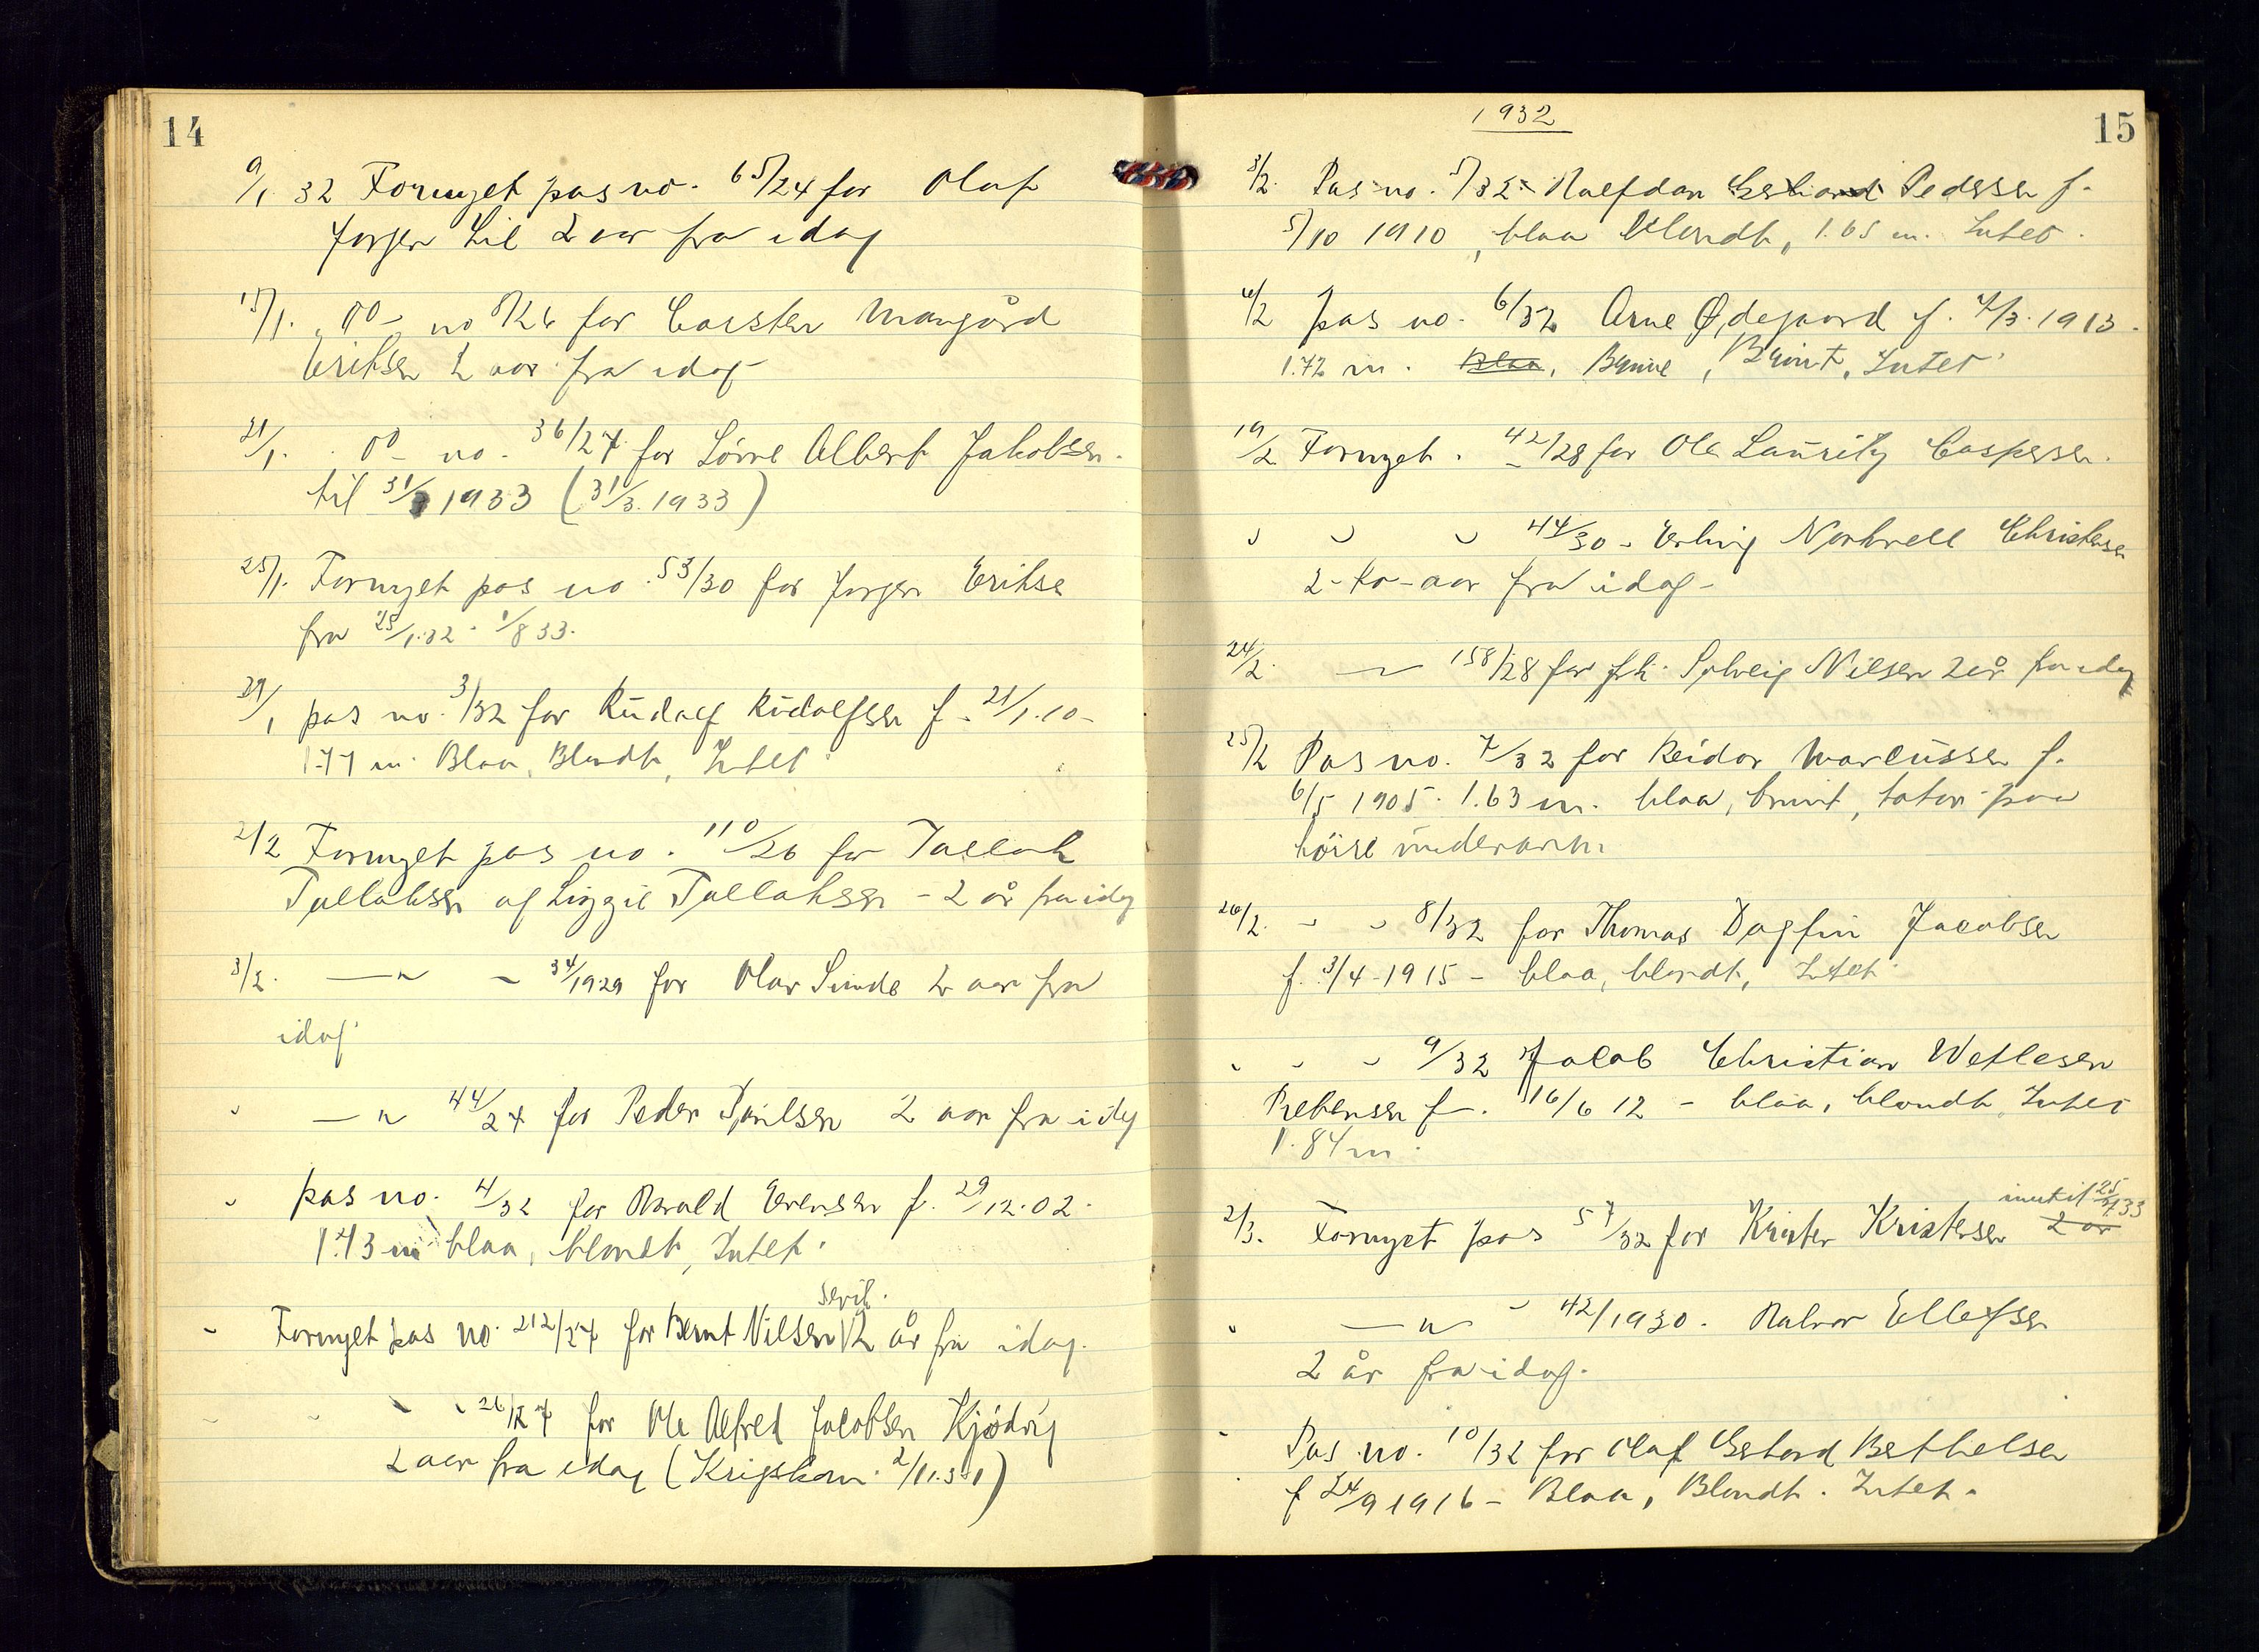 14
9/1 32 Fornyet pas no. 65/24 for Olaf
Jorgen Lil 2 aar fra idag
15/1. do no 8/26 for Carsten Mangård
Eriksen 2 aar fra idag
21/1. do no. 36/27 for Sörve Albert Jakobsen.
til 31/3 1933 (31/3. 1933)
25/1. Fornyet pas no. 53/30 for Jorgen Erikse
fra 25/1.32 - 1/8 33.
29/1 pas no. 3/32 for Rudolf Rudolfsen f. 21/1.10-
1.77 m. Blaa, Blondt, Intet
2/2 Fornyet pas no. 110/26 for Tallak
Tallaksen og Lizzie Tallaksen - 2 år fra idag
3/2. —"— - 34/1929 for Olav Sunde 2 aar fra
idag
" —"— 44/24 for Peder Poulsen 2 aar fra idag
" pas no. 4/32 for Harald Evensen f. 29/12.02.
1.73 m blaa, blondt, Intet.
sert.
" Fornyet pas no. 212/27 for Bernt Nilsen 2 år fra idag.
" " " " 26/27 for Ole Alfred Jacobsen Kjödvig
2 aar fra idag (Krigskom. 2/11.31)
1932
15
3/2. Pas no. 5/32 - Halfdan Gerhard Pedersen f.
5/10 1910, blaa blondt, 1.65 m. Intet.
4/2 pas no. 6/32 Arne Ødegaard f. 4/3. 1913.
1.72 m. Blaa, Brune, Brunt, Intet
19/2 Fornyet. 42/28 for Ole Lauritz Caspersen.
" " " 44/30 - Erling Nortvell Christensen
2-to-aar fra idag-
24/2. —"— 158/28 for frk. Solveig Nilsen 2 år fra idag
25/2 Pas no. 7/32 for Reidar Marcussen f.
6/5 1905. 1.63 m. blaa, brunt, tator paa
höire underarm
26/2. " " 8/32 for Thomas Dagfin Jacobsen
f. 3/4-1915 - blaa, blondt, Intet
" " " 9/32 Jacob Christian Wetlesen
Prebensen f. 16/6 12 - blaa, blondt Intet
1.84 m.
inntil 25/4 33
2/3. Fornyet pas 57/32 for Krister Kristensen 2 år
" —"— " 42/1930. Halvor Ellefsen
2 år fra idag.
" Pas no. 10/32 for Olaf Gerhard Bethelsen
f 24/9 1916 - Blaa, Blondt. Intet.